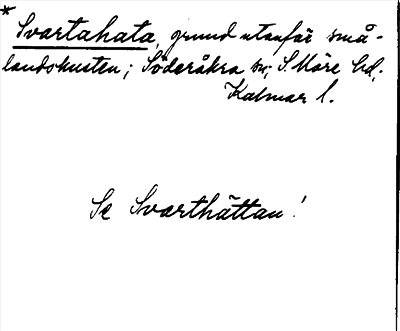 * Svartahata, grund utanför små-
landskusten; Söderåkra sn; S. Möre hd,
Kalmar l.
Se Svarthättan!